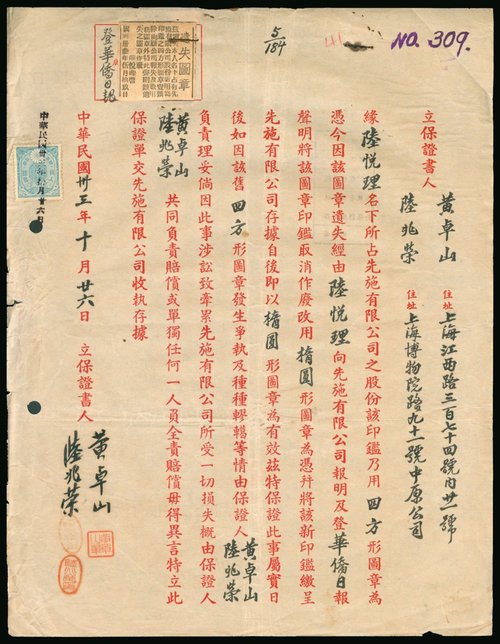 NO. 309.
5/184
遺失圖章
登華僑日報
立保證書人
黃卓山 住址 上海江西路三百七十四號內廿一號
陸兆榮 住址 上海博物院路九十一號中原公司
緣陸悅理名下所占先施有限公司之股份該印鑑乃用四方形圖章為
憑今因該圖章遺失經由陸悅理向先施有限公司報明及登華僑日報
聲明將該圖章印鑑取消作廢改用橢圓形圖章為憑幷將該新印鑑繳呈
先施有限公司存據自後即以橢圓形圖章為有效茲特保證此事屬實日
後如因該舊四方形圖章發生爭執及種種轇轕等情由保證人黃卓山陸兆榮
負責理妥倘因此事涉訟致牽累先施有限公司所受一切損失概由保證人
黃卓山陸兆榮共同負責賠償或單獨任何一人員全責賠償毋得異言特立此
保證單交先施有限公司收執存據
中華民國卅三年十月廿六日 立保證書人 黃卓山
陸兆榮
中華民國卅三年拾月廿六日